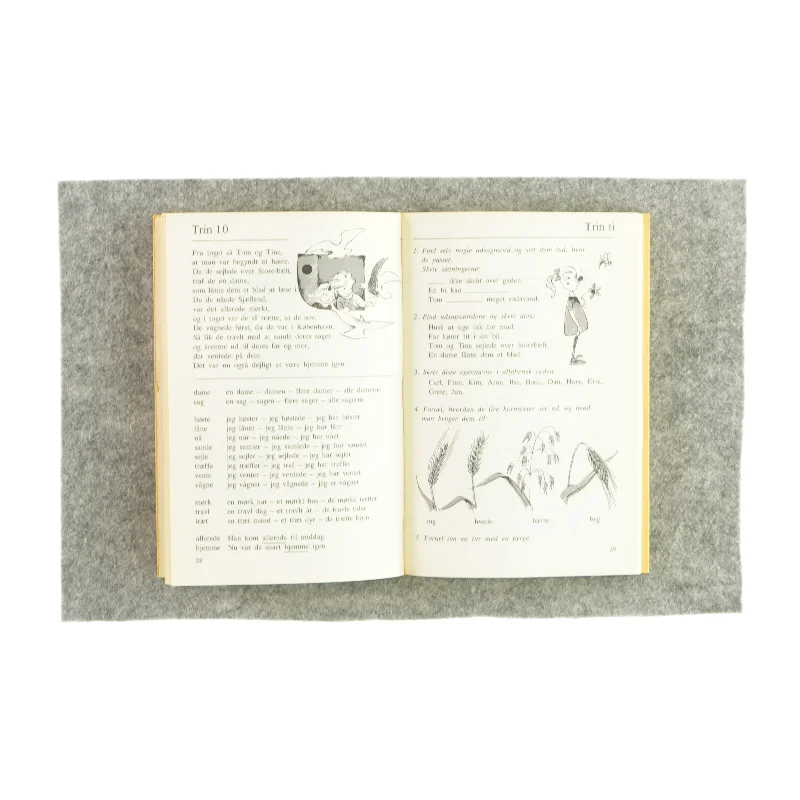 Trin 10
Fra toget så Tom og Tine,
at man var begyndt at høste.
Da de sejlede over Storebælt,
traf de en dame,
som lånte dem et blad at læse i
Da de nåede Sjælland,
var det allerede mørkt,
og i toget var de så trætte, at de sov.
De vågnede først, da de var i København.
Så fik de travlt med at samle deres sager
og komme ud til deres far og mor,
der ventede på dem.
Det var nu også dejligt at være hjemme igen.
dame en dame – damen – flere damer – alle damerne
sag en sag – sagen – flere sager – alle sagerne
høste jeg høster – jeg høstede – jeg har høstet
låne jeg låner – jeg lånte – jeg har lånt
nå jeg når – jeg nåede – jeg har nået
samle jeg samler – jeg samlede – jeg har samlet
sejle jeg sejler – jeg sejlede – jeg har sejlet
træffe jeg træffer – jeg traf – jeg har truffet
vente jeg venter – jeg ventede – jeg har ventet
vågne jeg vågner – jeg vågnede – jeg er vågnet
mørk en mørk nat – et mørkt hus – de mørke nætter
travl en travl dag – et travlt år – de travle tider
træt en træt mand – et træt dyr – de trætte børn
allerede Han kom allerede til middag
hjemme Nu var de snart hjemme igen.
28
Trin ti
1. Find selv nogle udsagnsord og sæt dem ind, hvor
de passer.
Skriv sætningerne:
ikke skråt over gaden.
En bi kan
Tom meget sodavand.
2. Find udsagnsordene og skriv dem:
Husk at sige tak for mad.
Far kører tit i sin bil.
Tom og Tine sejlede over Storebælt.
En dame lånte dem et blad.
3. Skriv disse egennavne i alfabetisk orden:
Carl, Finn, Kim, Arne, Bodil, Dan, Hans, Erik,
Grete, Jan.
4. Fortæl, hvordan de fire kornarter ser ud, og hvad
man bruger dem til:
rug hvede havre byg
5. Fortæl om en tur med en færge.
29